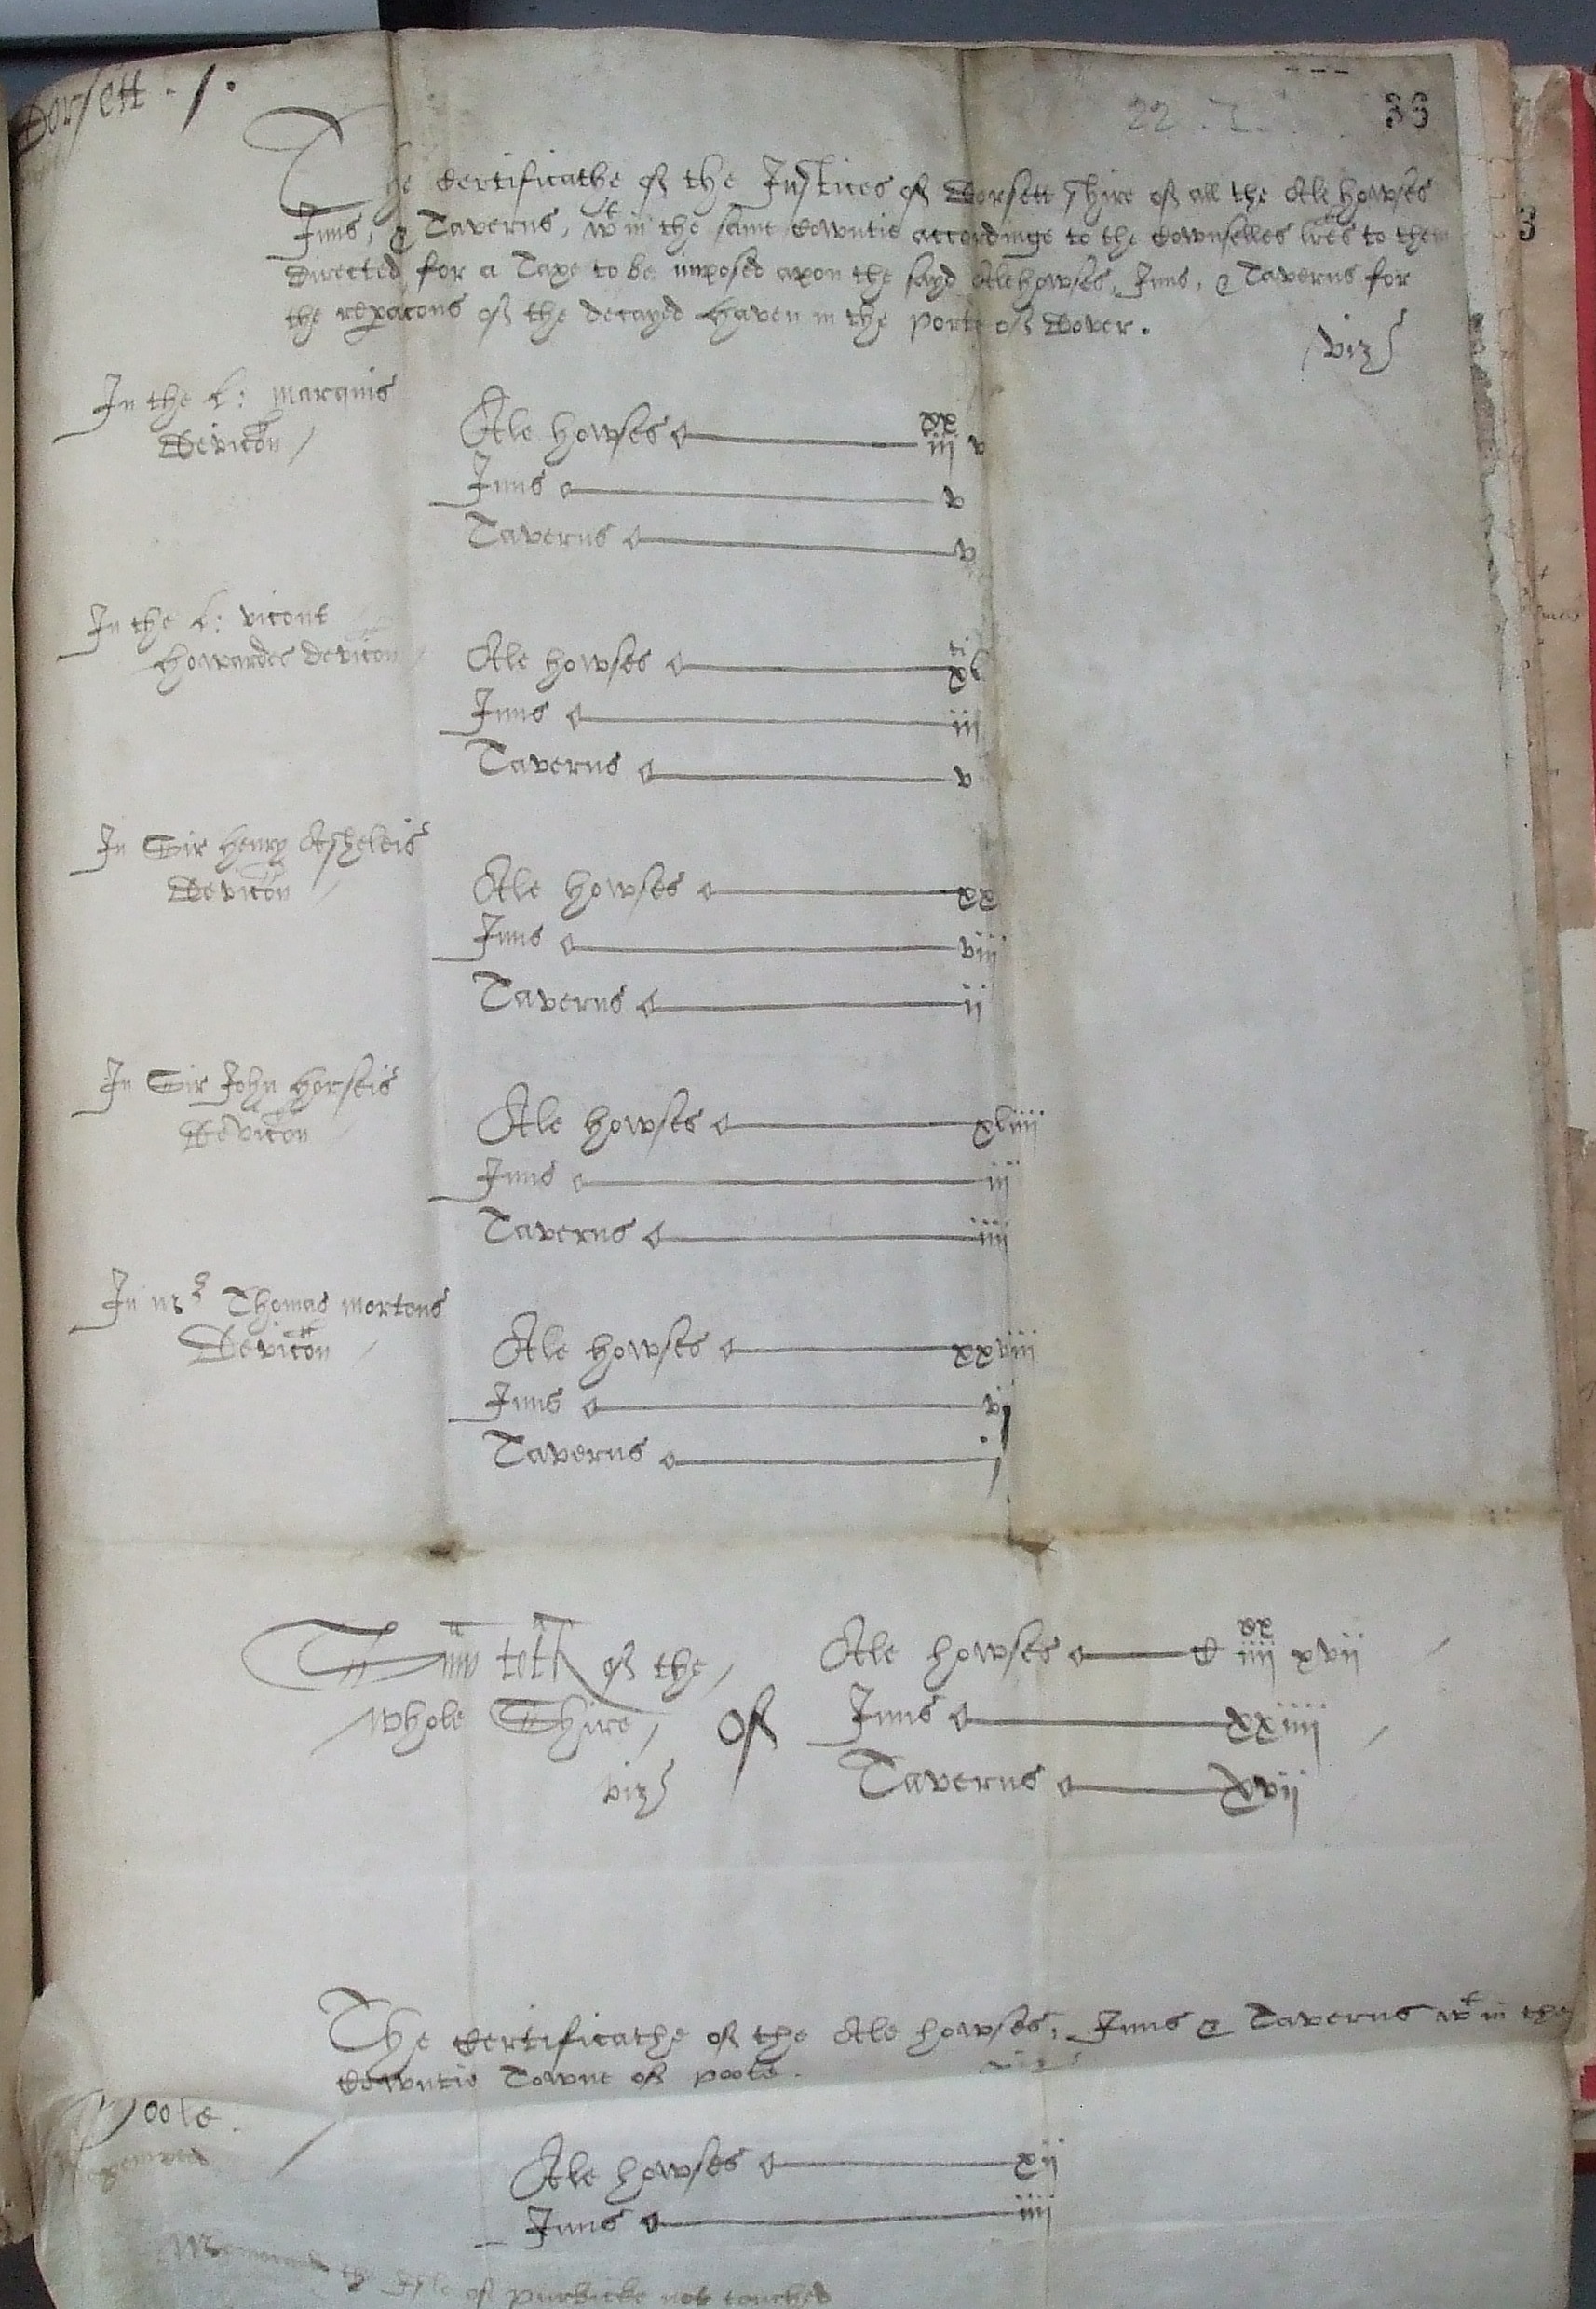 Dorsett . /.
22 . I.
33
The Certificathe of the Justices of Dorsett Shire of all the Ale howses
Inns, & Taverns, wt in the same Cowntie accordinge to the Cownselles lres to them
Directed for a Taxe to be imposed apon the sayd Alehowses, Inns, & Taverns for
the repacons of the decayed Haven in the Porte of Dover.
viz
3
In the L: Marquis
Devicon /
Ale howses xx iii v
Inns v
Taverns v
In the L: vicont
Howardes devicon
Ale howses xl ti
Inns iii
Taverns v
In Sir Henry Asheleis
Devicon /
Ale howses xx
Inns viii
Taverns ii
In Sir John Horseis
Devicon
Ale howses xliiii
Inns iii
Taverns iiii
In mr Thomas mortons
Devicon /
Ale howses xxviii
Inns vj
Taverns j
Sum totll of the /
whole Shire /
viz
Of
Ale howses C xx iiii xvii /
Inns xxiiii /
Taverns xvii
The Certificathe of the Ale howses, Inns & Taverns wt in the
Cowntie Towne of Poole.
viz
Poole .
Ale howses xii
Inns iiii
the Ile of Purbicke not touched